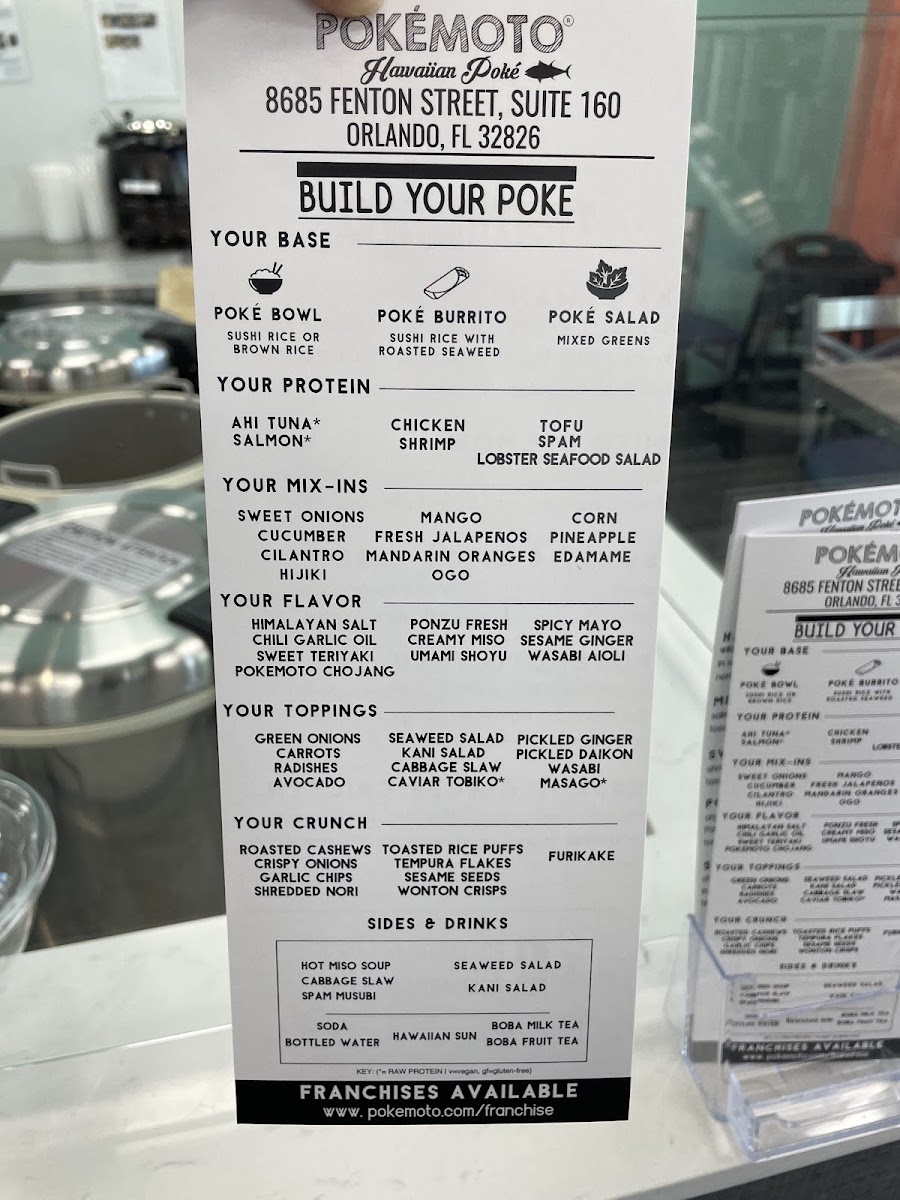 POKÉMOTO®
Hawaiian Poké
8685 FENTON STREET, SUITE 160
ORLANDO, FL 32826
BUILD YOUR POKE
YOUR BASE
POKÉ BOWL POKÉ BURRITO POKÉ SALAD
SUSHI RICE OR SUSHI RICE WITH MIXED GREENS
BROWN RICE ROASTED SEAWEED
YOUR PROTEIN
AHI TUNA* CHICKEN TOFU
SALMON* SHRIMP SPAM
LOBSTER SEAFOOD SALAD
YOUR MIX-INS
SWEET ONIONS MANGO CORN
CUCUMBER FRESH JALAPEÑOS PINEAPPLE
CILANTRO MANDARIN ORANGES EDAMAME
HIJIKI OGO
YOUR FLAVOR
HIMALAYAN SALT PONZU FRESH SPICY MAYO
CHILI GARLIC OIL CREAMY MISO SESAME GINGER
SWEET TERIYAKI UMAMI SHOYU WASABI AIOLI
POKEMOTO CHOJANG
YOUR TOPPINGS
GREEN ONIONS SEAWEED SALAD PICKLED GINGER
CARROTS KANI SALAD PICKLED DAIKON
RADISHES CABBAGE SLAW WASABI
AVOCADO CAVIAR TOBIKO* MASAGO*
YOUR CRUNCH
ROASTED CASHEWS TOASTED RICE PUFFS FURIKAKE
CRISPY ONIONS TEMPURA FLAKES
GARLIC CHIPS SESAME SEEDS
SHREDDED NORI WONTON CRISPS
SIDES & DRINKS
HOT MISO SOUP SEAWEED SALAD
CABBAGE SLAW
SPAM MUSUBI KANI SALAD
SODA HAWAIIAN SUN BOBA MILK TEA
BOTTLED WATER BOBA FRUIT TEA
KEY: (*= RAW PROTEIN | v=vegan, gf=gluten-free)
FRANCHISES AVAILABLE
www. pokemoto.com/franchise
POKÉMOT
POKÉM
8685 FENTON STREE
ORLANDO, FL 3
BUILD YOUR
YOUR BASE
POKÉ BOWL POKÉ BURRITO
YOUR PROTEIN
AHI TUNA* CHICKEN
SALMON* SHRIMP
YOUR MIX-INS
SWEET ONIONS MANGO
CUCUMBER FRESH JALAPEÑOS
CILANTRO MANDARIN ORANGES
HIJIKI OGO
YOUR FLAVOR
YOUR TOPPINGS
YOUR CRUNCH
SIDES & DRINKS
FRANCHISES AVAILABLE